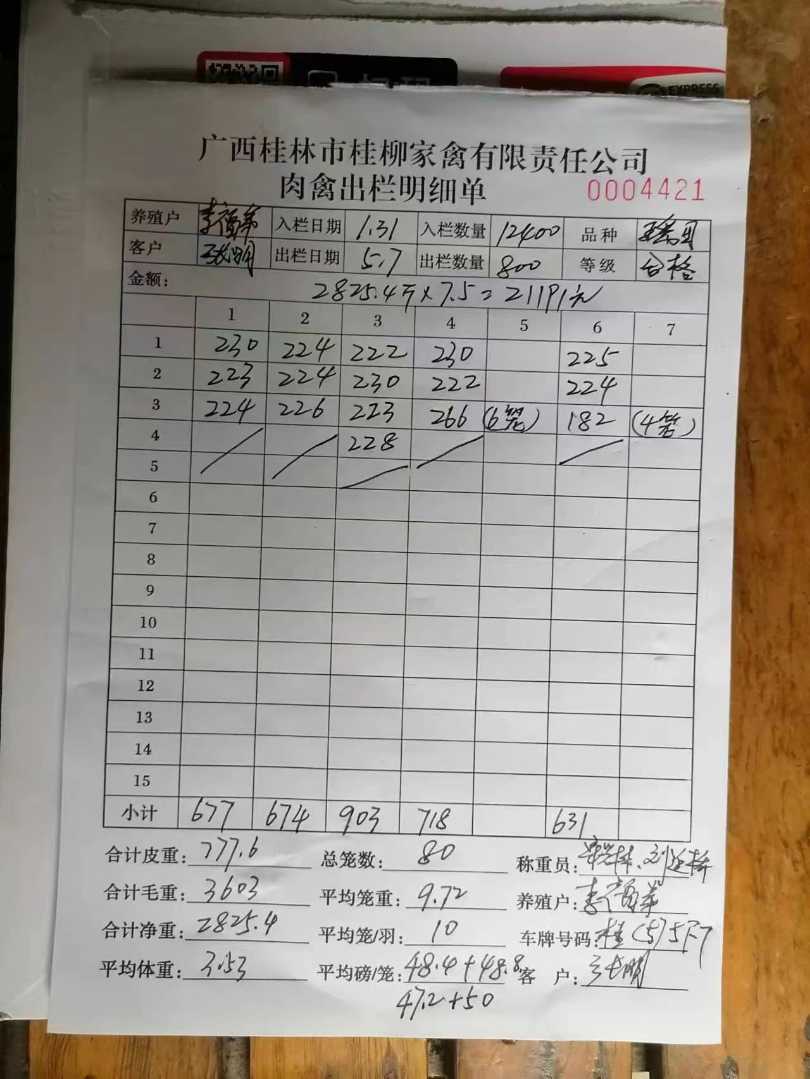 EXPRESS
广西桂林市桂柳家禽有限责任公司
肉禽出栏明细单 0004421
养殖户 入栏日期 1.31 入栏数量 12400 品种
客户 出栏日期 5.7 出栏数量 800 等级 合格
金额: 2825.4斤×7.5=21191元
1 2 3 4 5 6 7
1 230 224 222 230 225
2 223 224 230 222 224
3 224 226 223 266 (6笼) 182 (4笼)
4 228
5
6
7
8
9
10
11
12
13
14
15
小计 677 674 903 718 631
合计皮重: 777.6 总笼数: 80 称重员:
合计毛重: 3603 平均笼重: 9.72 养殖户:
合计净重: 2825.4 平均笼/羽: 10 车牌号码:
平均体重: 3.53 平均磅/笼: 48.4+48.8 客 户:
47.2+50